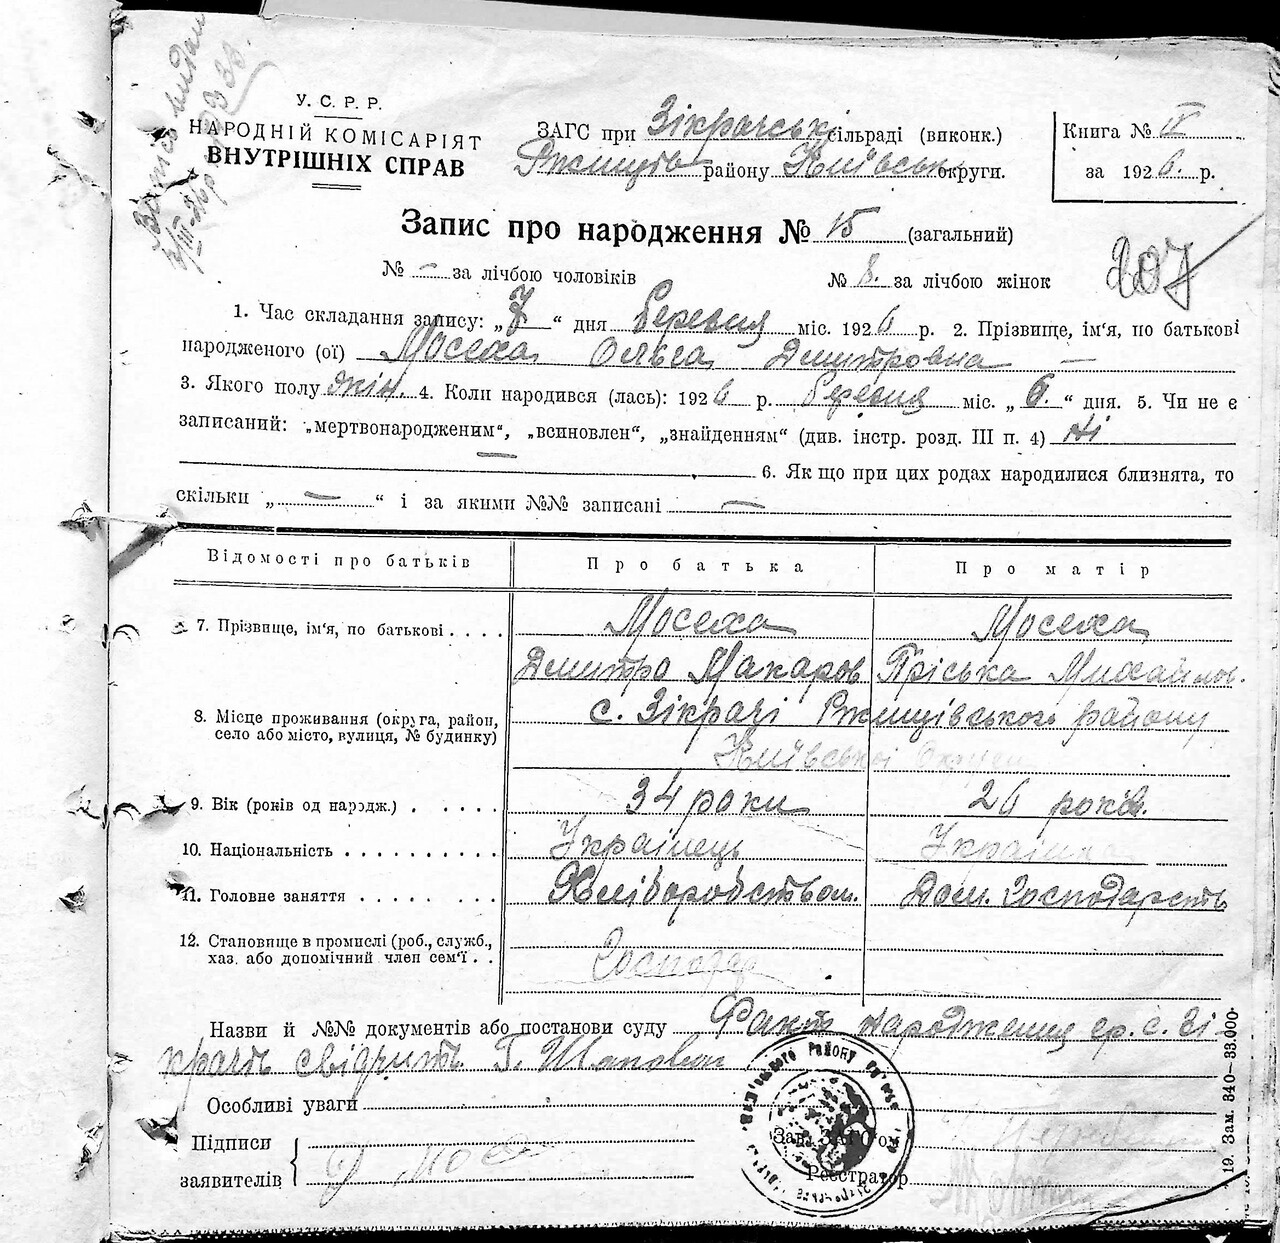 У. С. Р. Р.
НАРОДНІЙ КОМІСАРІЯТ
ВНУТРІШНІХ СПРАВ
ЗАГС при Зікрачські сільраді (виконк.)
Ржищів району Київськ округи.
Книга № ІІ
за 1926. р.
Запис про народження № 15 (загальний)
207
№ – за лічбою чоловіків № 8. за лічбою жінок
1. Час складання запису: „7“ дня березня міс. 1926 р. 2. Прізвище, ім'я, по батькові
народженого (ої) Мосеха Ольга Дмитровна —
3. Якого полу жін. 4. Коли народився (лась): 1926 р. березня міс. „6.“ дня. 5. Чи не є
записаний: „мертвонародженим“, „всиновлен“, „знайденням“ (див. інстр. розд. III п. 4) Ні
6. Як що при цих родах народилися близнята, то
скільки „ — “ і за якими №№ записані —
Відомості про батьків Про батька Про матір
7. Прізвище, ім'я, по батькові . . . . Мосеха Мосеха
Дмитро Макаров Пріська Михайлов.
8. Місце проживання (округа, район, с. Зікрачі Ржищівського району
село або місто, вулиця, № будинку)
Київської Округи
9. Вік (років од народж.) . . . . . 34 роки 26 років.
10. Національність . . . . . . . . . . Українець Українка
11. Головне заняття . . . . . . . . Хліборобством. Дом. Господарств
12. Становище в промислі (роб., служб.,
хаз. або допомічний член сем'ї . . Господар
Назви й №№ документів або постанови суду Факт народження гр. с. Зі
крачь свідчить Г. Шаповал
Особливі уваги
Підписи
заявителів
Д Мосе
Зав. ЗАГС'ом
Реєстратор
19. Зам. 840—33.000